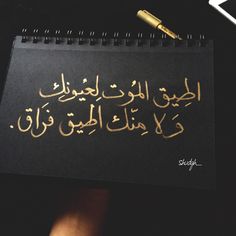 اطيق الموت لعيونك
وَلا مِنّك اطيق فَراق .